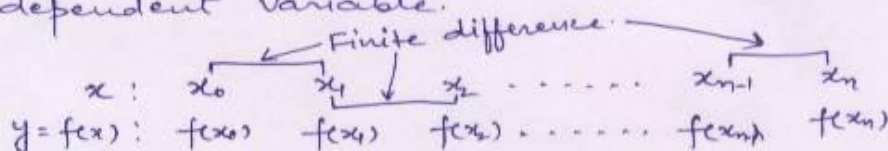 dependent variable.
Finite difference.
x : x₀ x₁ x₂ ...... xₙ₋₁ xₙ
y = f(x) : f(x₀) f(x₁) f(x₂) ...... f(xₙ₋₁) f(xₙ)